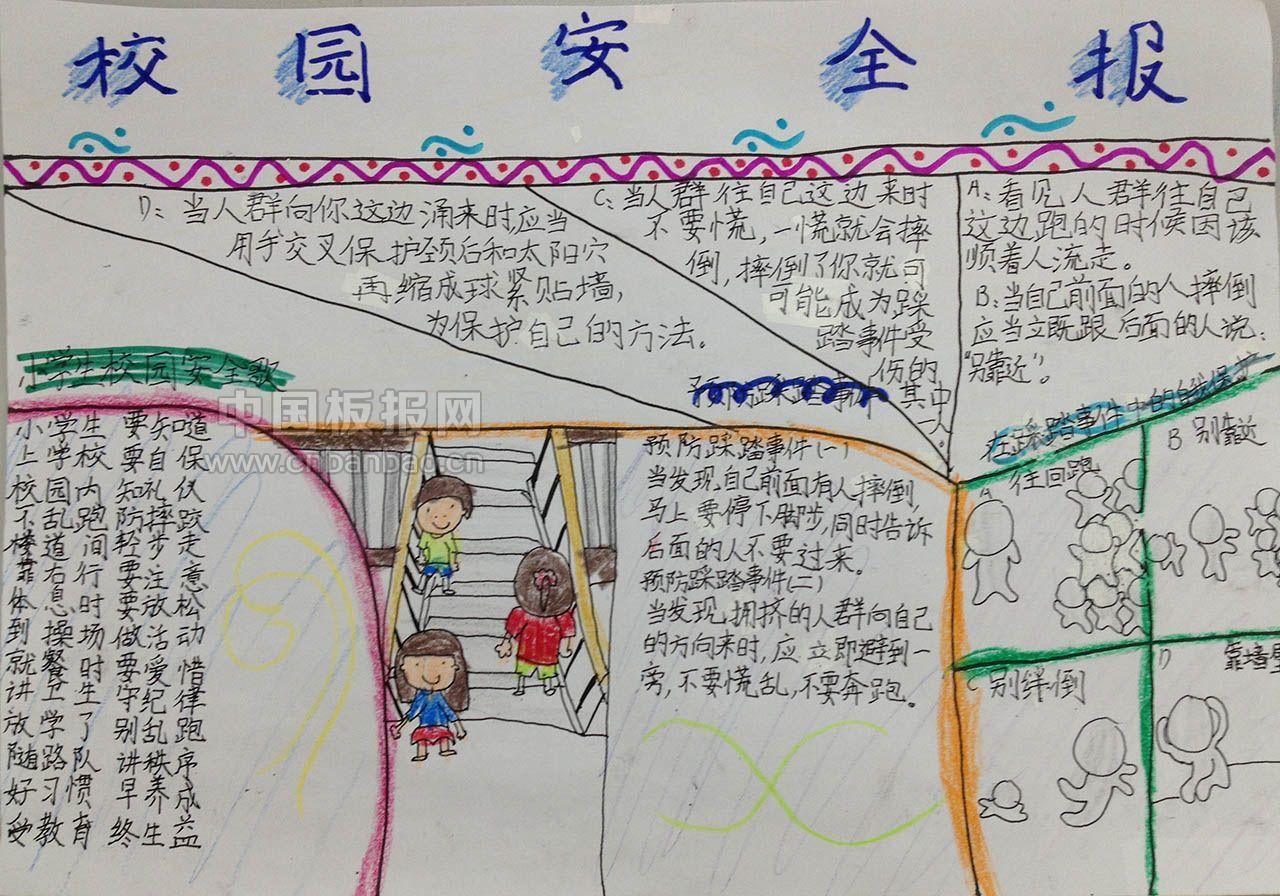 校园安全报
D：当人群向你这边涌来时，应当
用手交叉保护颈后和太阳穴
再缩成球紧贴墙，
为保护自己的方法。
C：当人群往自己这边来时
不要慌，一慌就会摔
倒，摔倒了你就可
可能成为踩
踏事件受
伤的
其中
一人。
A：看见人群往自己
这边跑的时候因该
顺着人流走。
B：当自己前面的人摔倒
应当立既跟后面的人说：
“别靠近”。
小学生校园安全歌
小学生 要知道
上学校 要自保
校园内 知礼仪
不乱跑 防摔跤
楼道间 轻步走
靠右行 要注意
体息时 要放松
到操场 做活动
就餐时 要爱惜
讲卫生 守纪律
放学了 别乱跑
随路队 讲秩序
好习惯 早养成
受教育 终生益
中国板报网
www.cnbanbao.cn
预防踩踏事件
预防踩踏事件(一)
当发现自己前面有人摔倒，
马上要停下脚步，同时告诉
后面的人不要过来。
预防踩踏事件(二)
当发现拥挤的人群向自己
的方向来时，应立即避到一
旁，不要慌乱，不要奔跑。
在踩踏事件中的自我保护
A 往回跑
B 别靠近
C 别绊倒
D 靠墙